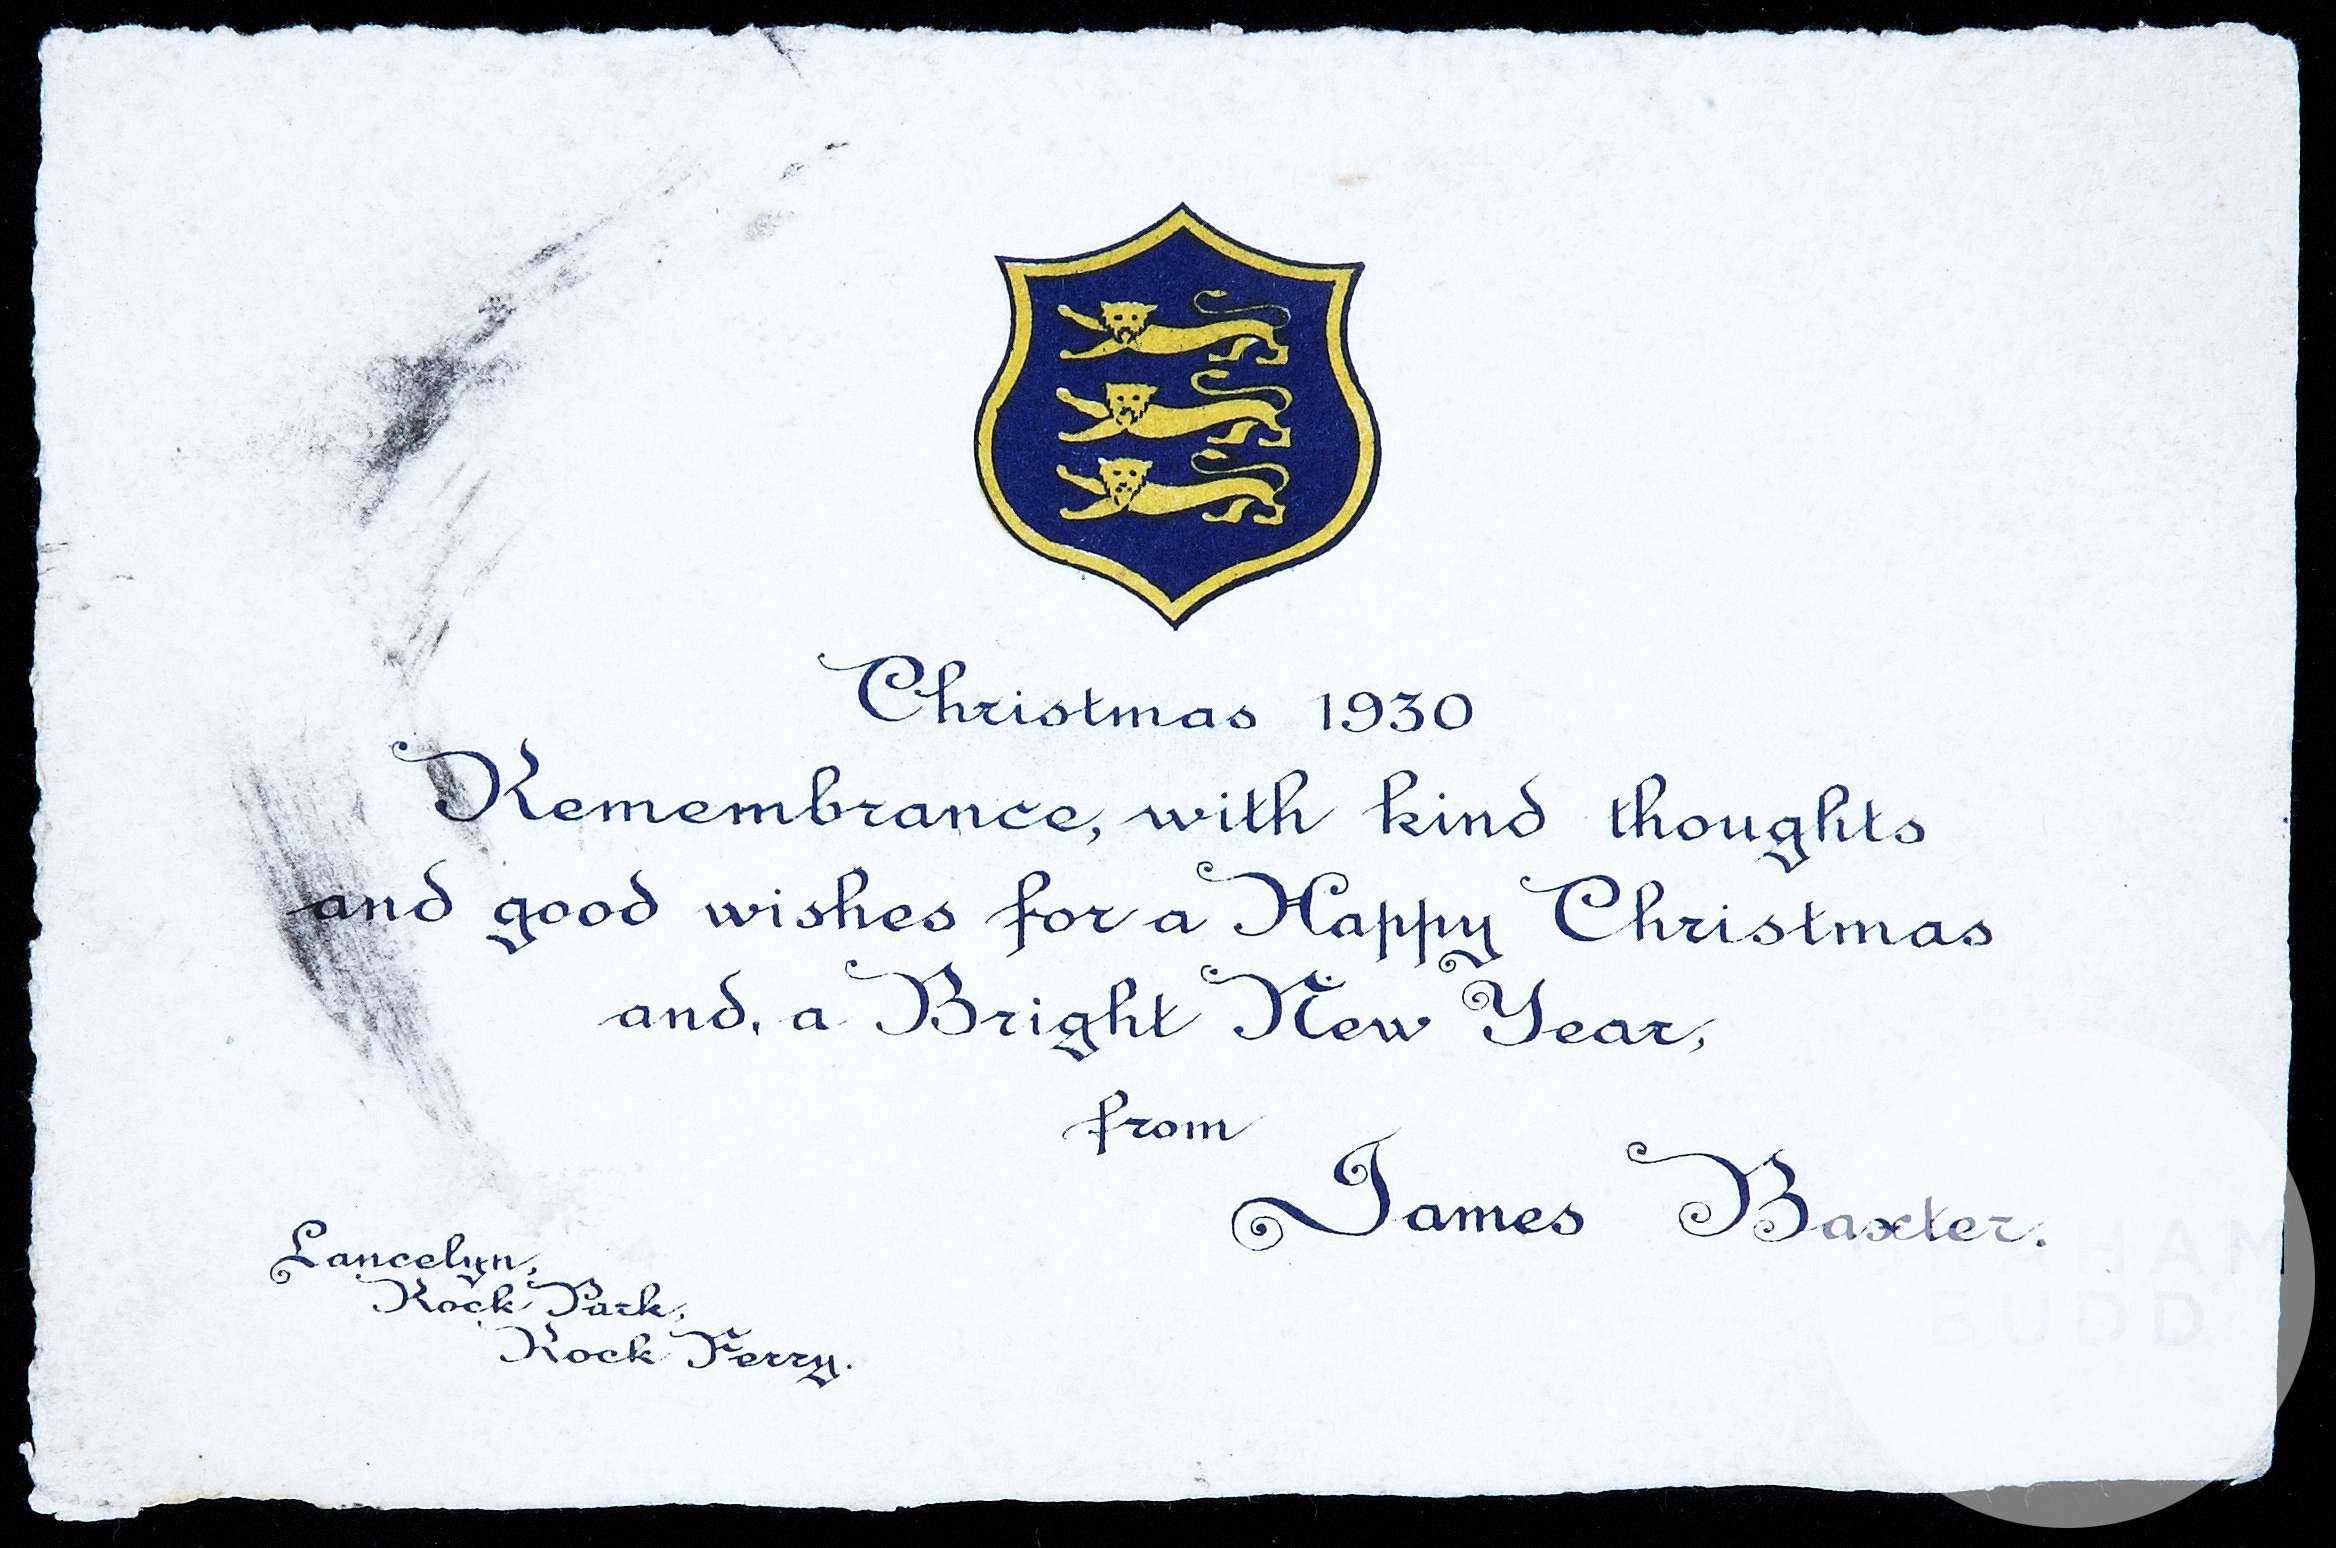 Christmas 1930
Remembrance, with kind thoughts
and good wishes for a Happy Christmas
and, a Bright New Year,
from
James Baxter.
Lancelyn,
Rock Park,
Rock Ferry.
HAM
BUDD